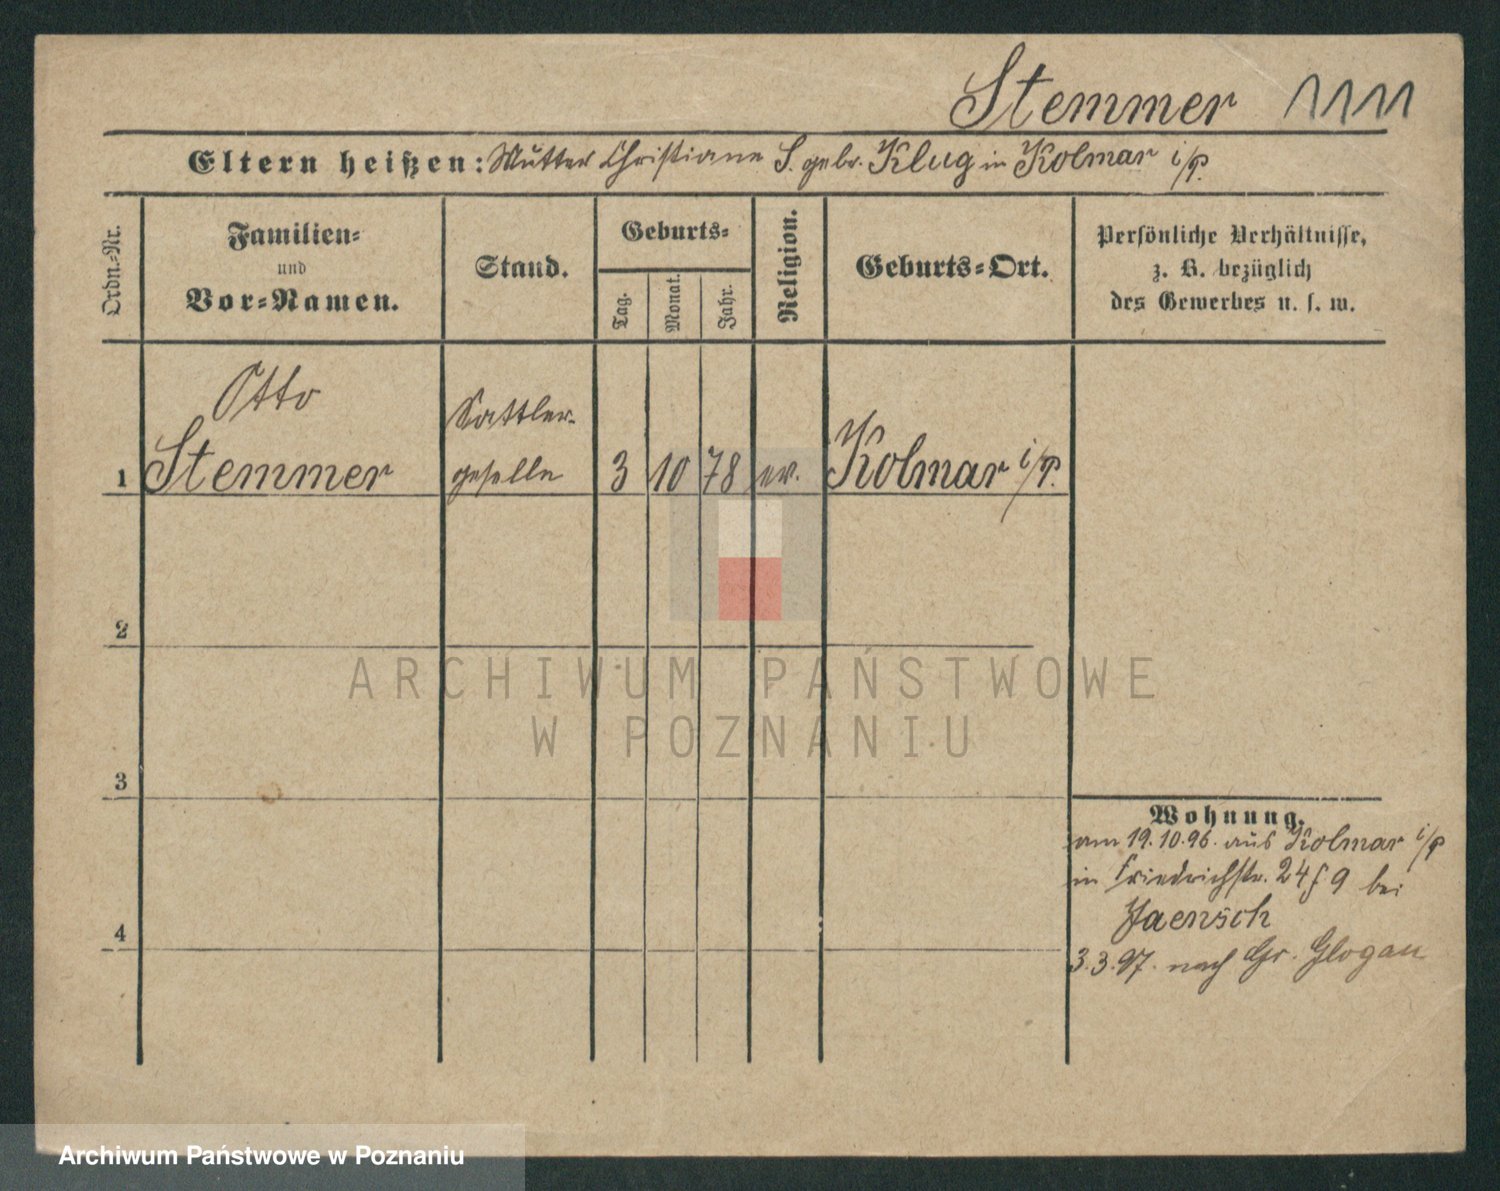 Stemmer 1111
Eltern heißen: Mutter Christiane S. gebr. Klug in Kolmar i/p.
Ordn.-Nr.
Familien-
und
Vor-Namen.
Stand.
Geburts-
Tag.
Monat.
Jahr.
Religion.
Geburts-Ort.
Persönliche Verhältnisse,
z. B. bezüglich
des Gewerbes u. s. w.
Otto
Sattler-
1 Stemmer geselle 3 10 78 ev. Kolmar i/p.
2
ARCHIWUM PAŃSTWOWE
W POZNANIU
3
Wohnung.
am 19.10.96. aus Kolmar i/p
in Friedrichstr. 24 9 bei
Jaensch
4
3.3.97. nach Gr. Glogau
Archiwum Państwowe w Poznaniu